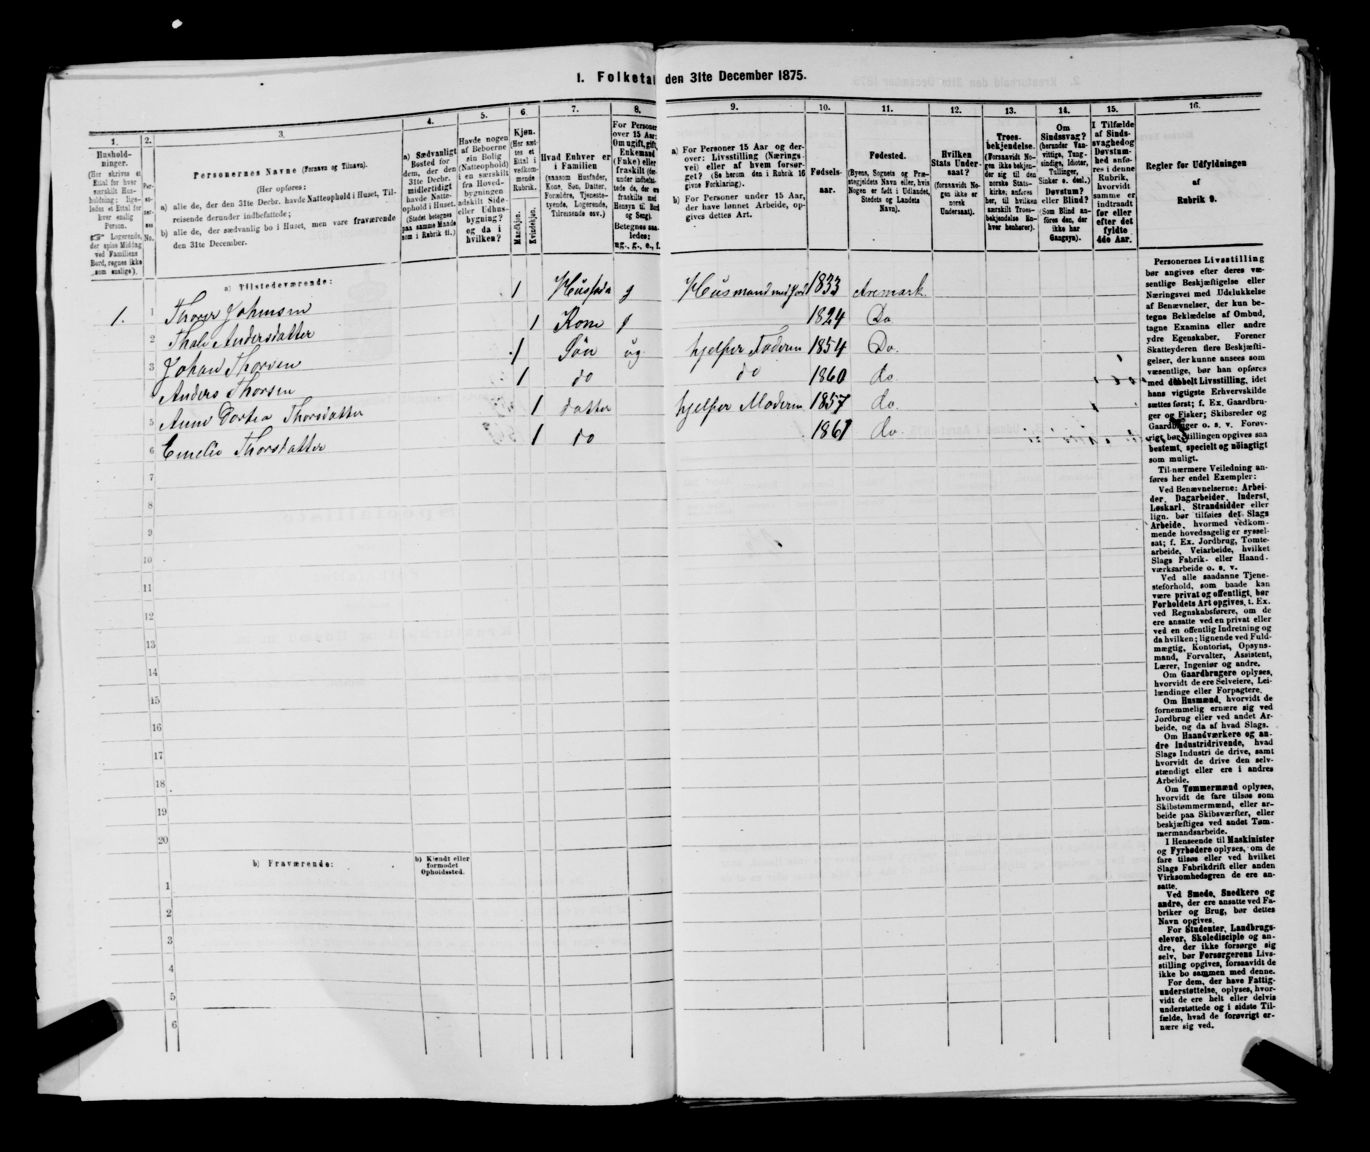 1. Folketal den 31te December 1875.
1.
2.
3.
4.
5.
6.
7.
8.
9.
10.
11.
12.
13.
14.
15.
16.
Hushold-
ninger.
(Her skrives et
Ettal for hver
særskilt Hus-
holdning; lige-
ledes et Ettal
for hver enslig
Person.
☞ Logerende,
der spise Middag
ved Familiens
Bord, regnes ikke
som enslige).
Per-
so-
ner-
nes
No.
Personernes Navne (Fornavn og Tilnavn).
(Her opføres:
a) alle de, der den 31te Decbr. havde Natteophold i Huset, Til-
reisende derunder indbefattede;
b) alle de, der sædvanlig bo i Huset, men vare fraværende
den 31te December.
a) Sædvanligt
Bosted for
dem, der den
31te Decbr.
midlertidigt
havde Natte-
ophold i Huset.
(Stedet betegnes
paa samme Maade
som i Rubrik 11.)
Havde nogen
af Beboerne
sin Bolig
(Natteophold)
i en særskilt
fra Hoved-
bygningen
adskilt Side-
eller Udhus-
bygning?
og da i
hvilken?
Kjøn.
(Her sæt-
tes et
Ettal i
vedkom-
mende
Rubrik.
Mandkjøn.
Kvindekjøn.
Hvad Enhver er
i Familien
(saasom Husfader,
Kone, Søn, Datter,
Forældre, Tjeneste-
tyende, Logerende,
Tilreisende osv.)
For Personer
over 15 Aar:
Om ugift, gift,
Enkemand
(Enke) eller
fraskilt
Betegnes saa-
ledes:
ug., g., e., f.
a) For Personer 15 Aar og der-
over: Livsstilling (Nærings-
vei) eller af hvem forsør-
get? (Se herom den i Rubrik 16
givne Forklaring).
b) For Personer under 15 Aar,
der have lønnet Arbeide, op-
gives dettes Art.
Fødsels-
aar.
Fødested.
(Byens, Sognets og Præ-
stegjeldets Navn eller, hvis
Nogen er født i Udlandet,
Stedets og Landets
Navn).
Hvilken
Stats Under-
saat?
(forsaavidt No-
gen ikke er
norsk
Undersaat).
Troes-
bekjendelse.
(Forsaavidt No-
gen ikke bekjen-
der sig til den
norske Stats-
kirke, anføres
her, til hvilken
særskilt Troes-
bekjendelse En-
hver henhører).
Om
Sindssvag?
(herunder Van-
vittige, Tung-
sindige, Idioter,
Tullinger,
Sinker o. desl.)
Døvstum?
eller Blind?
(Som Blind an-
føres den, der
ikke har
Gangsyn).
I Tilfælde
af Sinds-
svaghed og
Døvstum-
hed anfø-
res i denne
Rubrik,
hvorvidt
samme er
indtraadt
før eller
efter det
fyldte
4de Aar.
Regler for Udfyldningen
af
Rubrik 9.
a) Tilstedeværende:
1. 1 Thorer Johnsen 1 Husfader g Husmand med Jord 1833 Aremark.
2 Thale Andersdatter 1 Kone g 1824 Do
3 Johan Thorsen 1 Søn ug hjelper Faderen 1854 Do.
Anders Thorsen 1 do do 1860 do
5 Anne Dortea Thorsdatter 1 datter hjelper Moderen 1857 do.
6 Emelie Thorsdatter 1 do 1861 do.
7
8
9
10
11
12
13
14
15
16
17
18
19
20
b) Fraværende:
b) Kjendt eller
formodet
Opholdssted.
1
2
3
4
5
6
Personernes Livsstilling
bør angives efter deres væ-
sentlige Beskjæftigelse eller
Næringsvei med Udelukkelse
af Benævnelser, der kun be-
tegne Beklædelse af Ombud,
tagne Examina eller andre
ydre Egenskaber. Forener
Skatteyderen flere Beskjæfti-
gelser, der kunne ansees som
væsentlige, bør han opføres
med dobbelt Livsstilling, idet
hans vigtigste Erhvervskilde
sættes først; f. Ex. Gaardbru-
ger og Fisker; Skibsreder og
Gaardbruger o. s. v. Forøv-
rigt bør Stillingen opgives saa
bestemt, specielt og nøiagtigt
som muligt.
Til nærmere Veiledning an-
føres her endel Exempler:
Ved Benævnelserne: Arbei-
der, Dagarbeider, Inderst,
Løskarl, Strandsidder eller
lign. bør tilføies det Slags
Arbeide, hvormed vedkom-
mende hovedsagelig er syssel-
sat; f. Ex. Jordbrug, Tomte-
arbeide, Veiarbeide, hvilket
Slags Fabrik- eller Haand-
værksarbeide o. s. v.
Ved alle saadanne Tjene-
steforhold, som baade kan
være privat og offentligt, bør
Forholdets Art opgives, t. Ex.
ved Regnskabsførere, om de
ere ansatte ved en privat eller
ved en offentlig Indretning og
da hvilken; lignende ved Fuld-
mægtig, Kontorist, Opsyns-
mand, Forvalter, Assistent,
Lærer, Ingeniør og andre.
Om Gaardbrugere oplyses,
hvorvidt de ere Selveiere, Lei-
lændinge eller Forpagtere.
Om Husmænd, hvorvidt de
fornemmelig ernære sig ved
Jordbrug eller ved andet Ar-
beide, og da af hvad Slags.
Om Haandværkere og an-
dre Industridrivende, hvad
Slags Industri de drive, samt
hvorvidt de drive den selv-
stændigt eller ere i andres
Arbeide.
Om Tømmermænd oplyses,
hvorvidt de fare tilsøs som
Skibstømmermænd, eller ar-
beide paa Skibsværfter, eller
beskjæftiges ved andet Tøm-
mermandsarbeide.
I Henseende til Maskinister
og Fyrbødere oplyses, om de
fare tilsøs eller ved hvilket
Slags Fabrikdrift eller anden
Virksomhedsgren de ere an-
satte.
Ved Smede, Snedkere og
andre, der ere ansatte ved Fa-
briker og Brug, bør dettes
Navn opgives.
For Studenter, Landbrugs-
elever, Skoledisciple og an-
dre, der ikke forsørge sig
selv, bør Forsørgerens Livs-
stilling opgives, forsaavidt de
ikke bo sammen med denne.
For dem, der have Fattig-
understøttelse, oplyses, hvor-
vidt de ere helt eller delvis
understøttede og i sidste Til-
fælde, hvad de forøvrigt er-
nære sig ved.